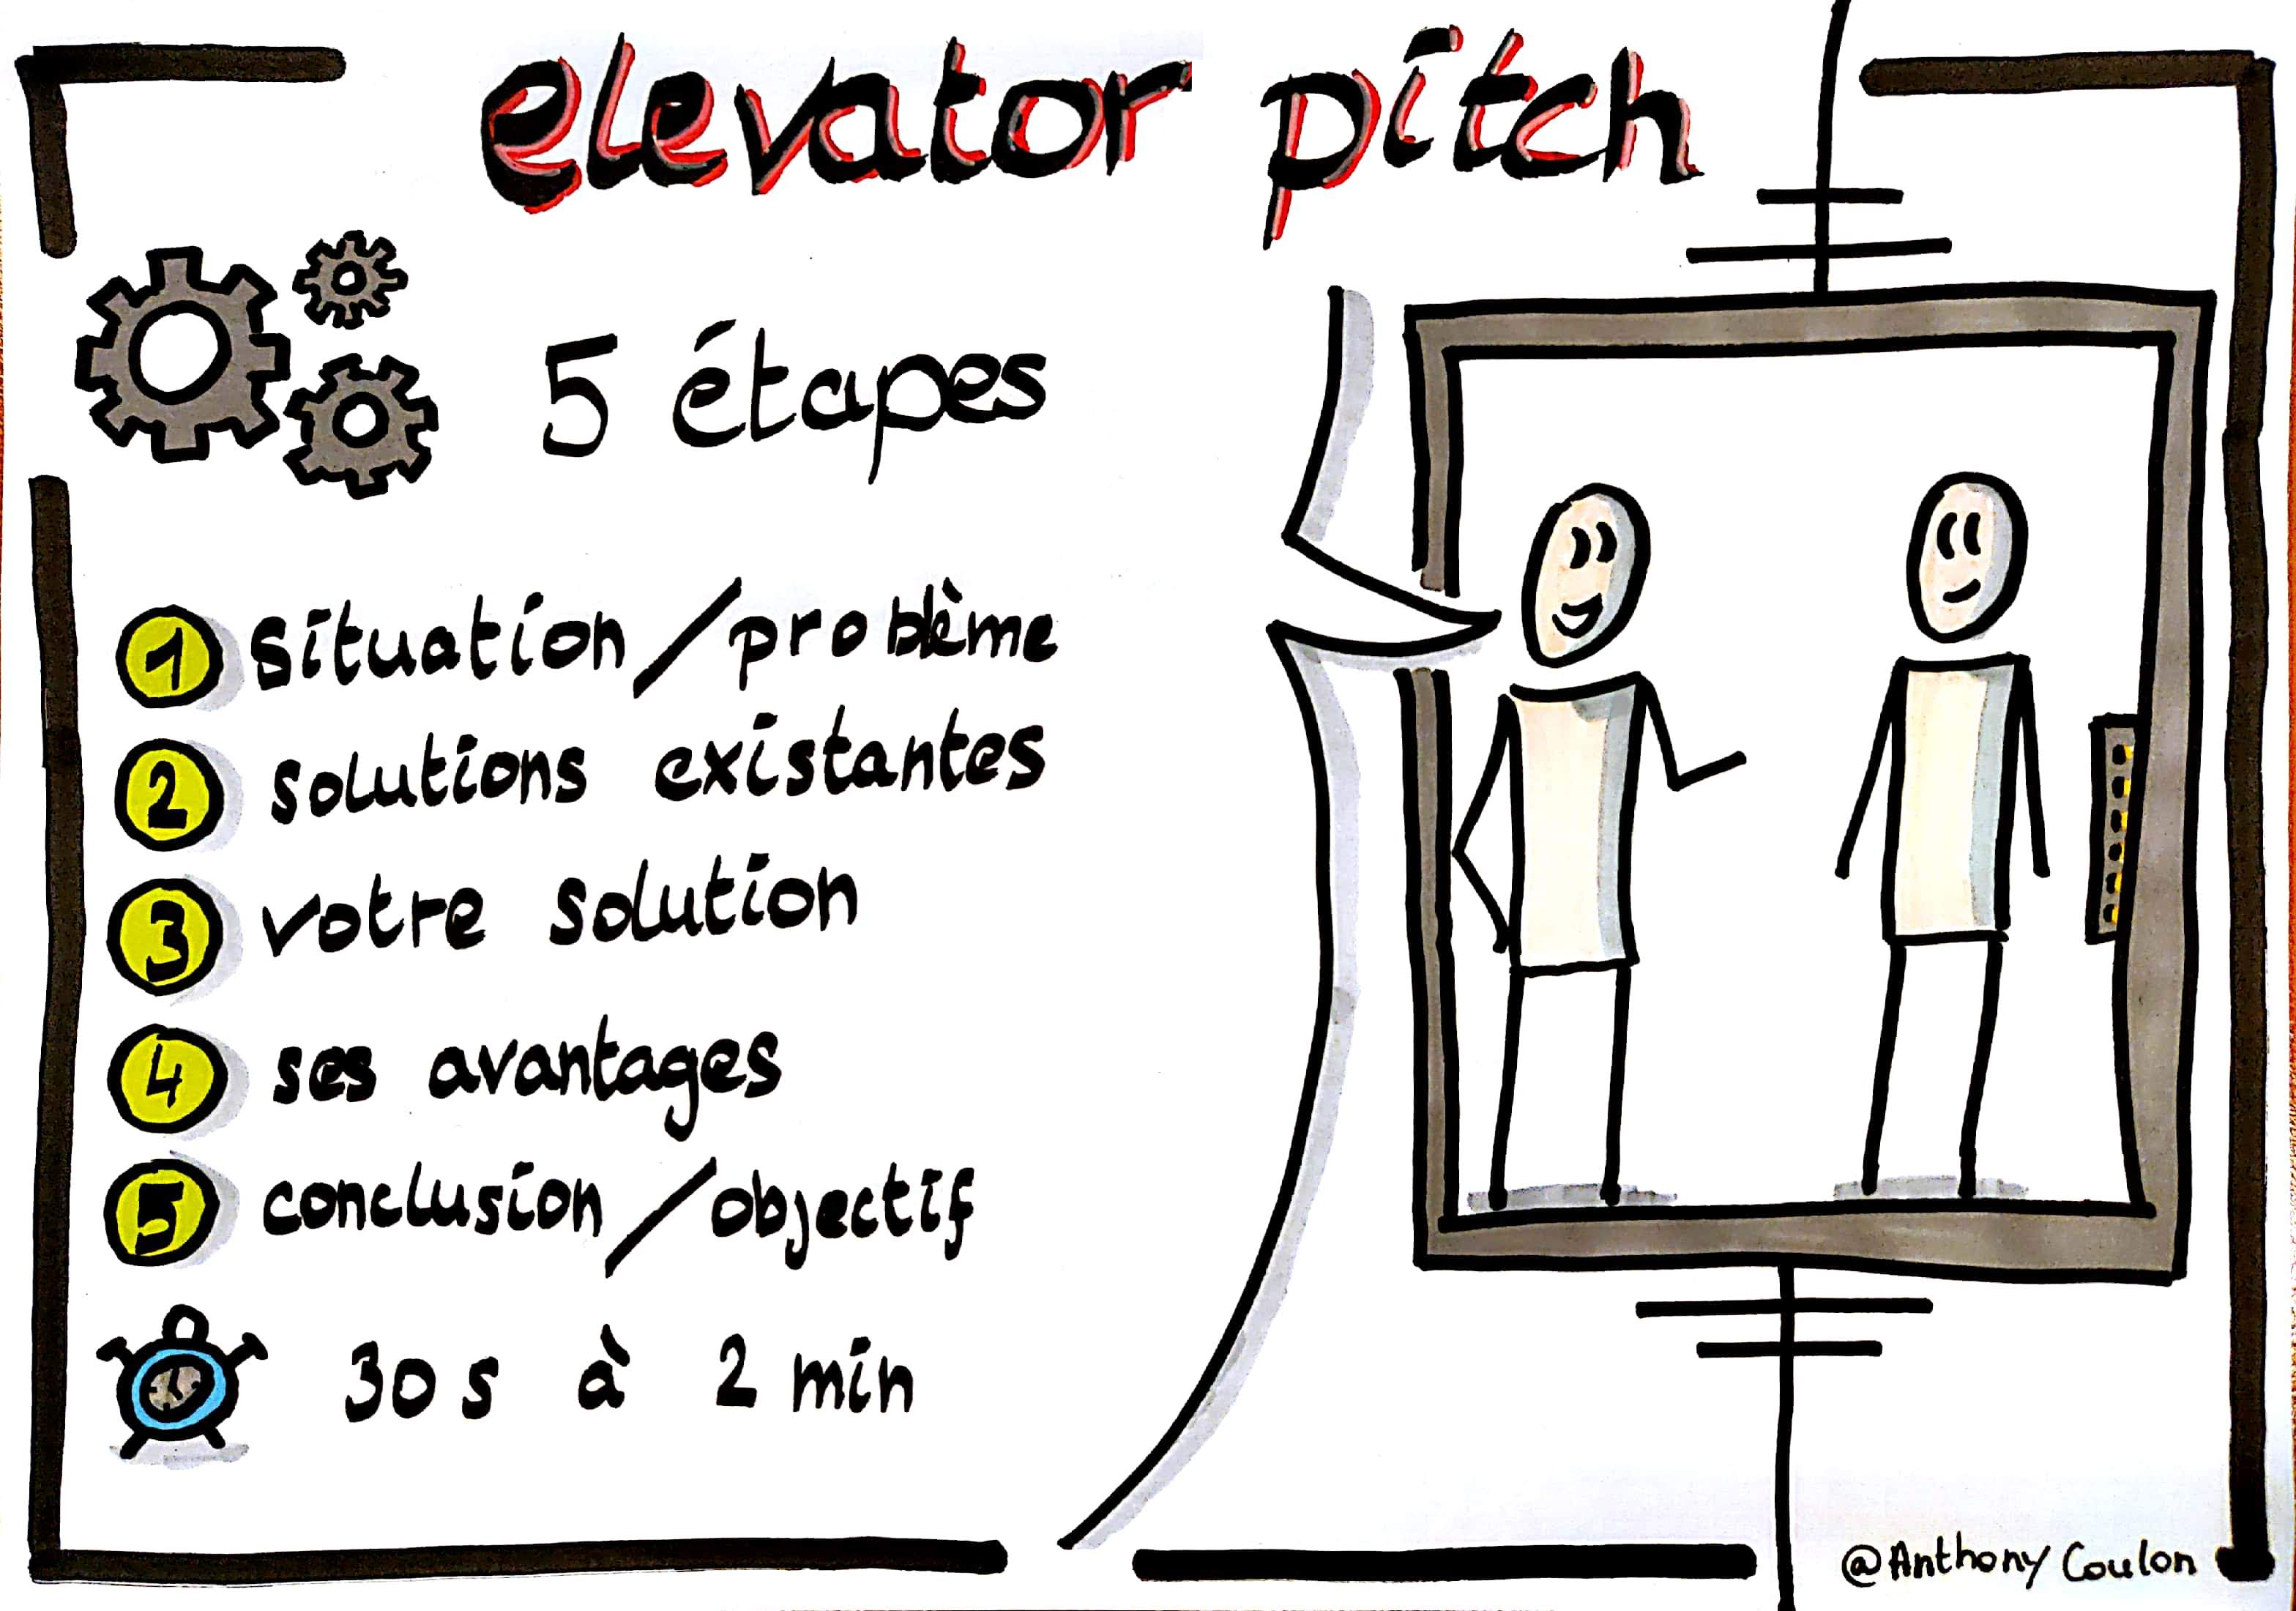 elevator pitch
5 étapes
1 situation/problème
2 solutions existantes
3 votre solution
4 ses avantages
5 conclusion/objectif
30 s à 2 min
@Anthony Coulon